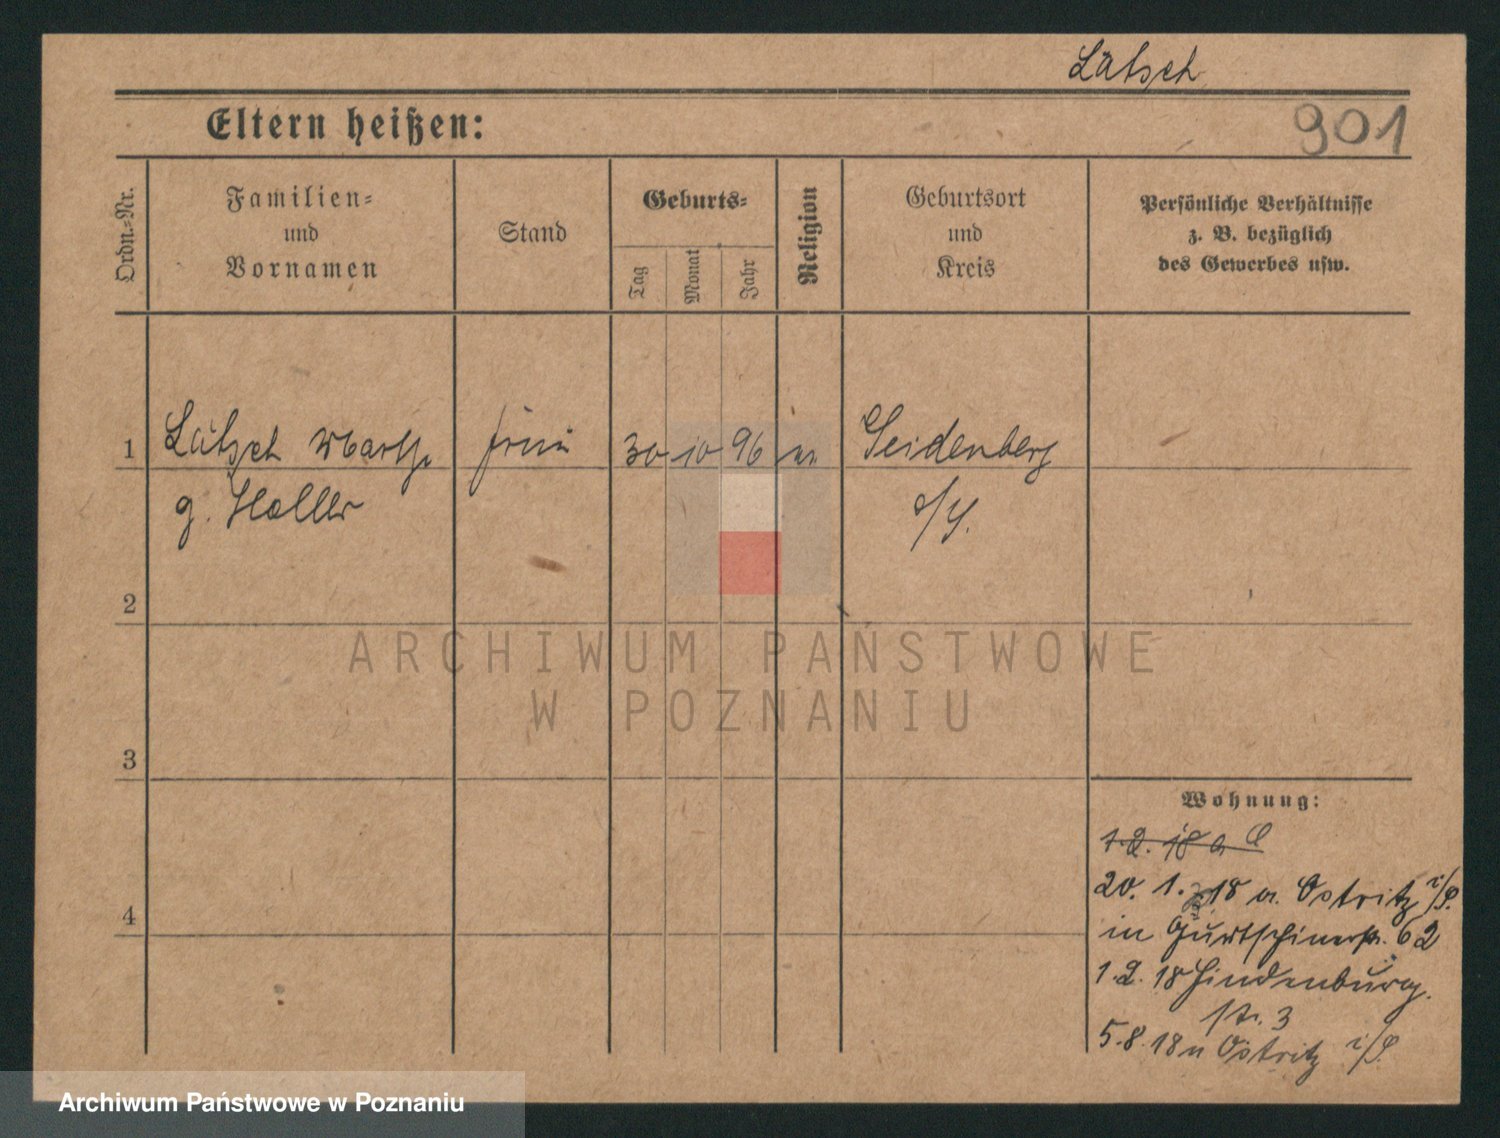 Lätsch
Eltern heißen:
901
Ordn.=Nr.
Familien=
und
Vornamen
Stand
Geburts=
Tag
Monat
Jahr
Religion
Geburtsort
und
Kreis
Persönliche Verhältnisse
z. B. bezüglich
des Gewerbes usw.
1
Lätsch Martha frau 30 10 96 Seidenberg
g. Haller
2
3
4
Wohnung:
1.2. 18 a
20. 1. 18 v. Ostritz i/S.
in Gurtschinerstr. 62
1.2. 18 Hindenburg.
str. 3
5.8.18 n Ostritz i/S.
ARCHIWUM PAŃSTWOWE
W POZNANIU
Archiwum Państwowe w Poznaniu